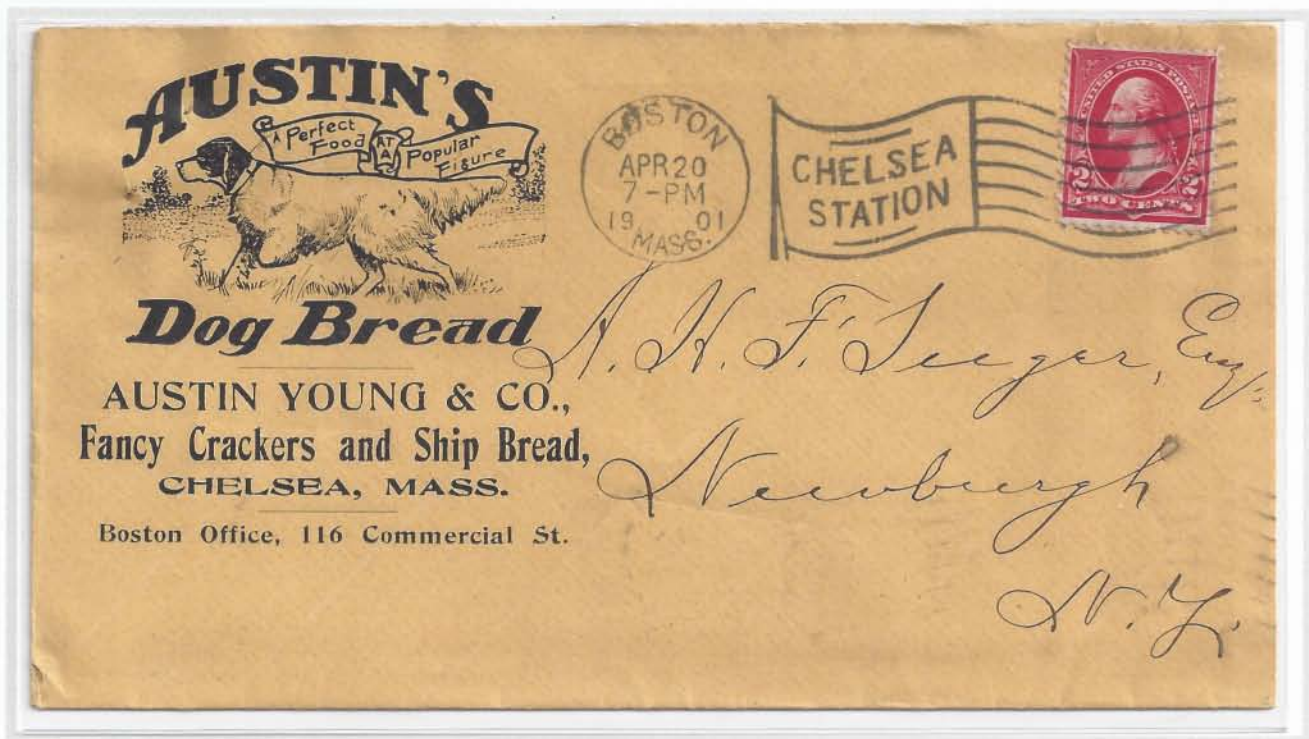 AUSTIN'S
A Perfect Food AT A Popular Figure
Dog Bread
AUSTIN YOUNG & CO.,
Fancy Crackers and Ship Bread,
CHELSEA, MASS.
Boston Office, 116 Commercial St.
BOSTON
APR 20
7-PM
19 01
MASS.
CHELSEA
STATION
UNITED STATES POSTAGE
2 2
TWO CENTS
A. H. F. Seeger, Esq.
Newburgh
N.Y.